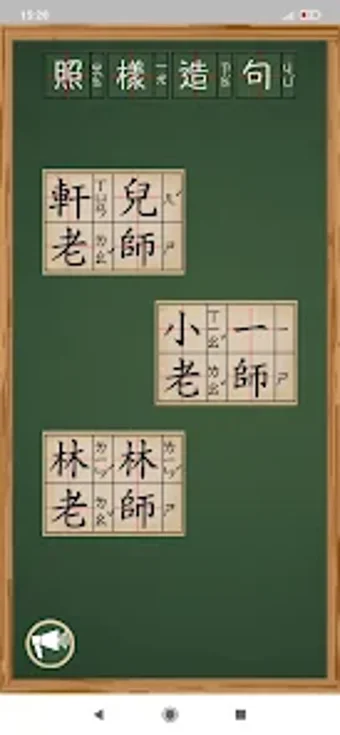 15:26
照樣造句
軒兒
老師
小一
老師
林林
老師